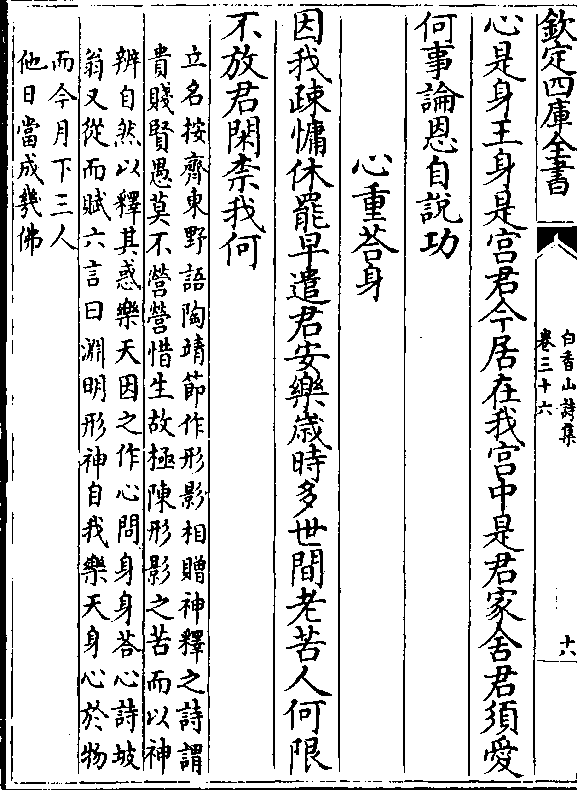 欽定四庫全書
白香山詩集
卷三十六
十六
心是身王身是宫君今居在我宫中是君家舍君須愛
何事論恩自說功
心重荅身
因我疎慵休罷早遣君安樂歲時多世間老苦人何限
不放君閑柰我何
立名按齊東野語陶靖節作形影相贈神釋之詩謂
貴賤賢愚莫不營營惜生故極陳形影之苦而以神
辨自然以釋其惑樂天因之作心問身身荅心詩坡
翁又從而賦六言曰淵明形神自我樂天身心於物
而今月下三人
他日當成幾佛